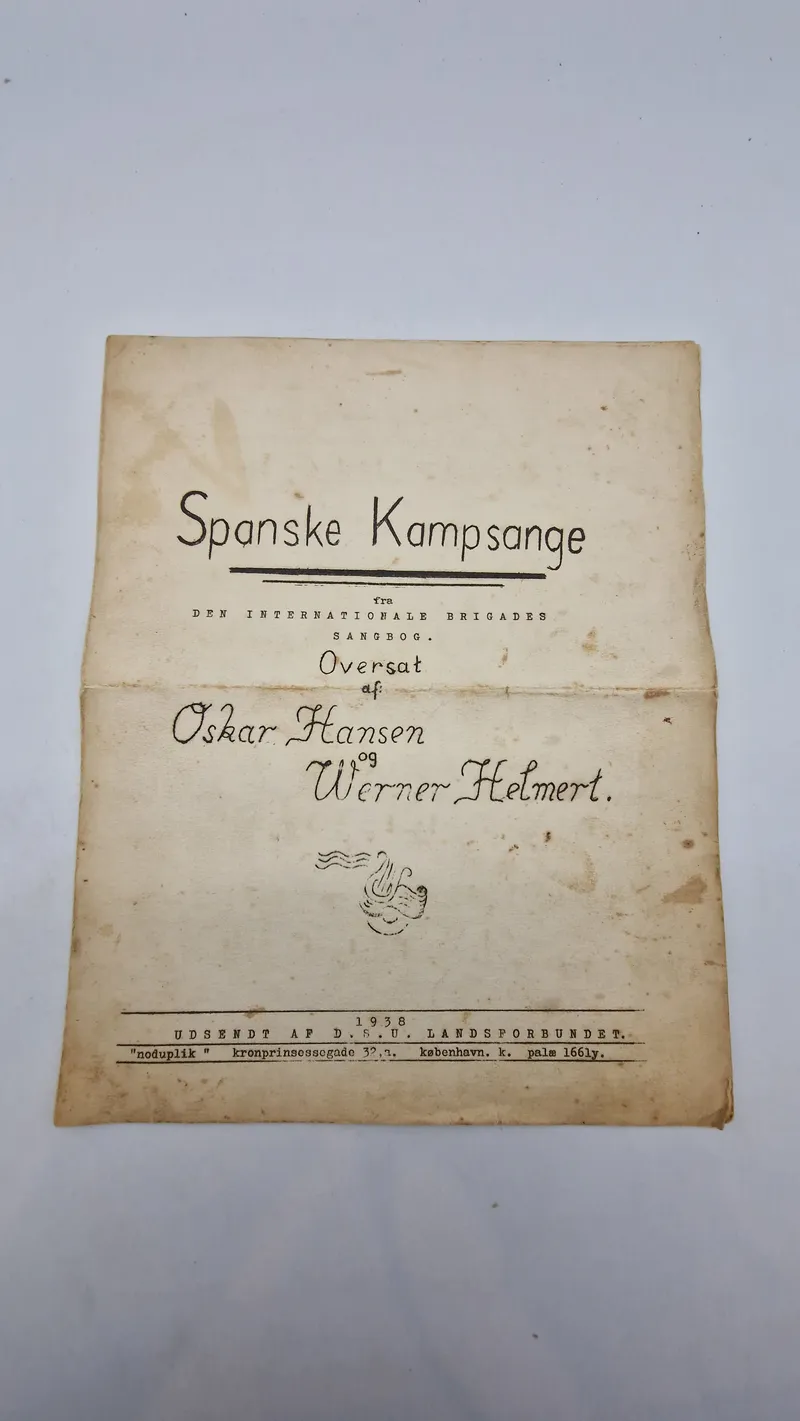 Spanske Kampsange
fra
DEN INTERNATIONALE BRIGADES
SANGBOG.
Oversat
af:
Oskar Hansen
og
Werner Helmert.
1938
UDSENDT AF D.S.U. LANDSFORBUNDET.
"noduplik " kronprinsessegade københavn. k. palæ 1661y.